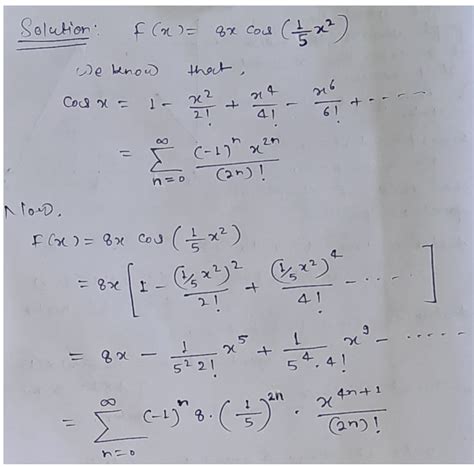 Solution: F(x) = 8x cos (1/5 x²)
We know that,
cos x = 1 - x²/2! + x⁴/4! - x⁶/6! + ------
= ∑_{n=0}^{∞} (-1)ⁿ x²ⁿ/(2n)!
Now,
F(x) = 8x cos (1/5 x²)
= 8x [1 - (1/5 x²)²/2! + (1/5 x²)⁴/4! - ----]
= 8x - 1/(5² 2!) x⁵ + 1/(5⁴ · 4!) x⁹ - -----
= ∑_{n=0}^{∞} (-1)ⁿ 8 · (1/5)²ⁿ · x⁴ⁿ⁺¹/(2n)!